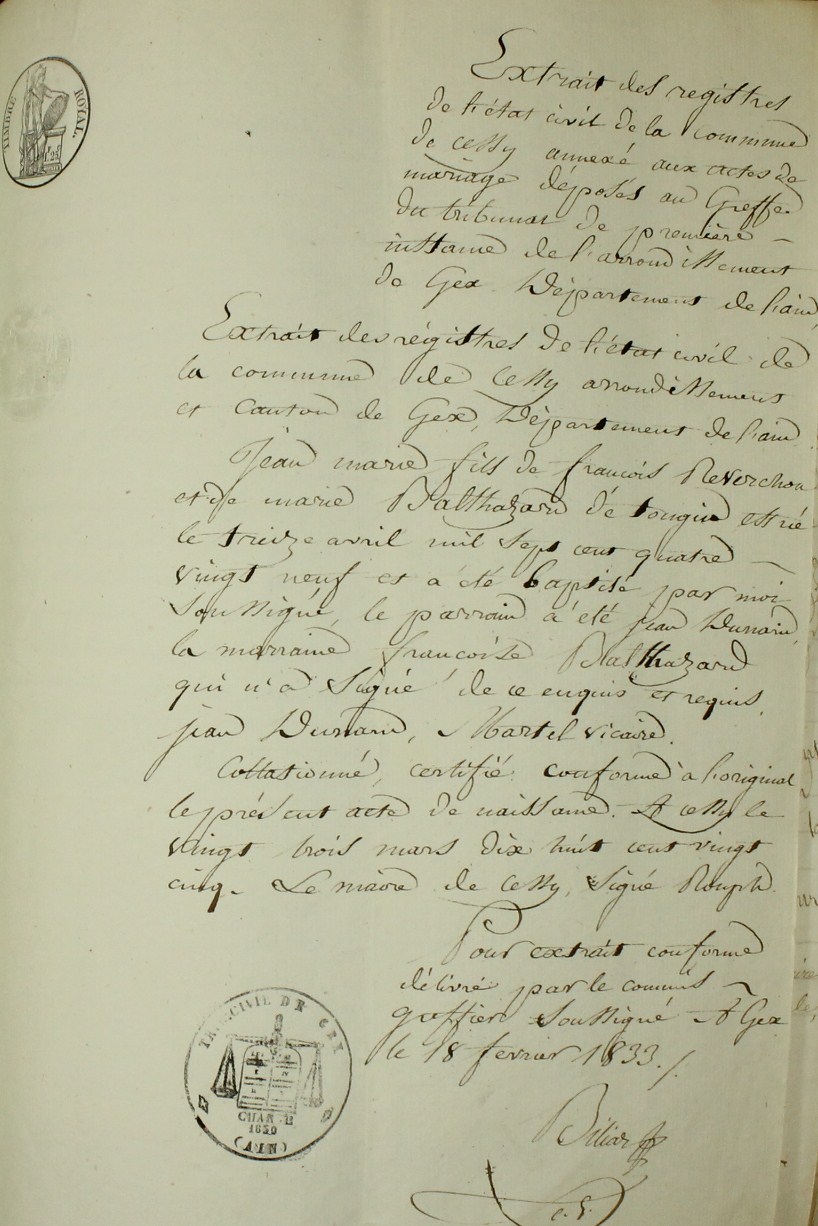 TIMBRE ROYAL.
Extrait des registres
de l'état civil de la commune
de Cessy annexé aux actes de
mariage déposés au Greffe
du tribunal de première
instance de l'arrondissement
de Gex. Département de l'ain
Extrait des régistres de l'état civil de
la commune de Cessy arrondissement
et Canton de Gex, Département de l'ain.
Jean marie fils de francois Reverchon
et de marie Balthazard de tougin est né
le treize avril mil sept cent quatre
vingt neuf et a été baptisé par moi
soussigné, le parrain a été jean Dunand,
la marraine francoise Balthazard
qui n'a signé de ce enquis et requis.
jean Dunand, Martel vicaire.
Collationné, certifié conforme à l'original
le présent acte de naissance. A Cessy le
vingt trois mars dix huit cent vingt
cinq. Le maire de Cessy, Signé Rouph
Pour extrait conforme
délivré par le commis
greffier soussigné A Gex
le 18 fevrier 1833./.
TRIB. CIVIL DE GEX
CHAR.
1830
(AIN)